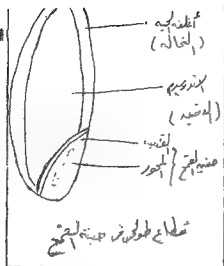 أغلفة الحبة
(النخالة)
الاندوسبرم
(الدقيق)
القصعة
المحور
جنين القمح
قطاع طولى فى حبة القمح